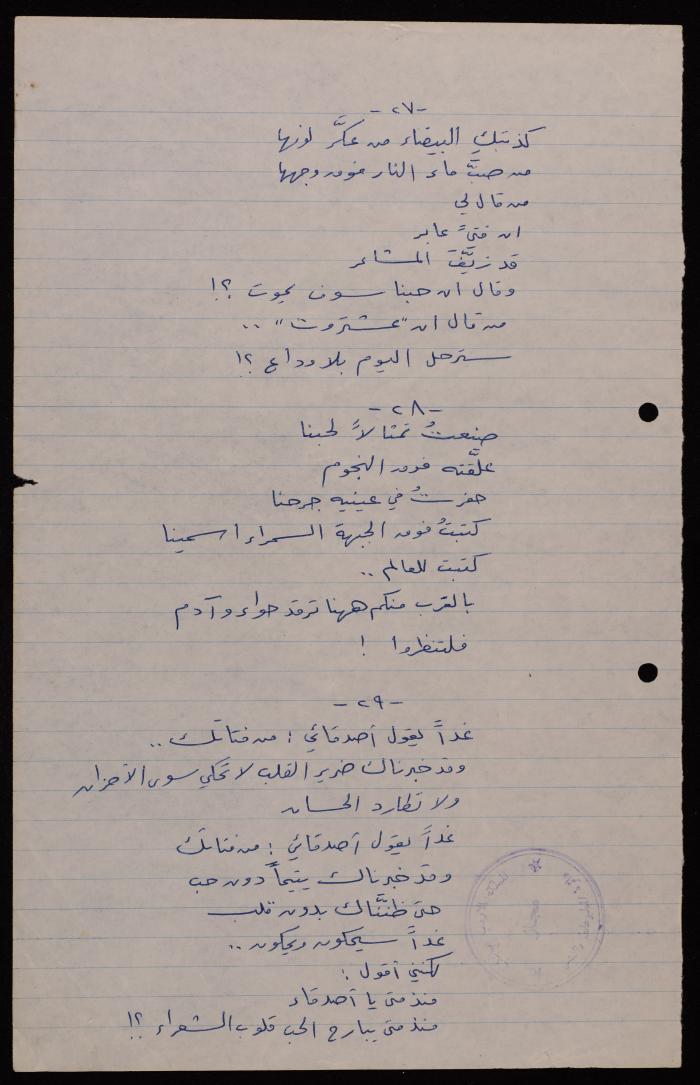 -٢٧-
كذبتكِ البيضاء من عكَّر لونها
من صبَّ ماء النار فوق وجهها
من قال لي
ان فتىً عابر
قد زيَّفَ المشاعر
وقال ان حبنا سوف يموت ؟!
من قال ان "عشتروت" ..
سترحل اليوم بلا وداع ؟!
-٢٨-
صنعتُ تمثالاً لحبنا
علَّقته فوق النجوم
حفرتُ في عينيه جرحنا
كتبتُ فوق الجبهة السمراء اسمينا
كتبت للعالم ..
بالقرب منكم ههنا ترقد حواء وآدم
فلتنظروا !
-٢٩-
غداً يقول أصدقائي : من فتاتك ..
وقد خبرناك ضرير القلب لا تحكي سوى الأحزان
ولا تطارد الحسان
غداً يقول أصدقائي : من فتاتك
وقد خبرناك يتيماً دون حب
حتى ظننَّاك بدون قلب
غداً سيحكون ويحكون ..
لكنني أقول :
منذ متى يا أصدقاء
منذ متى يبارح الحب قلوب الشعراء ؟!